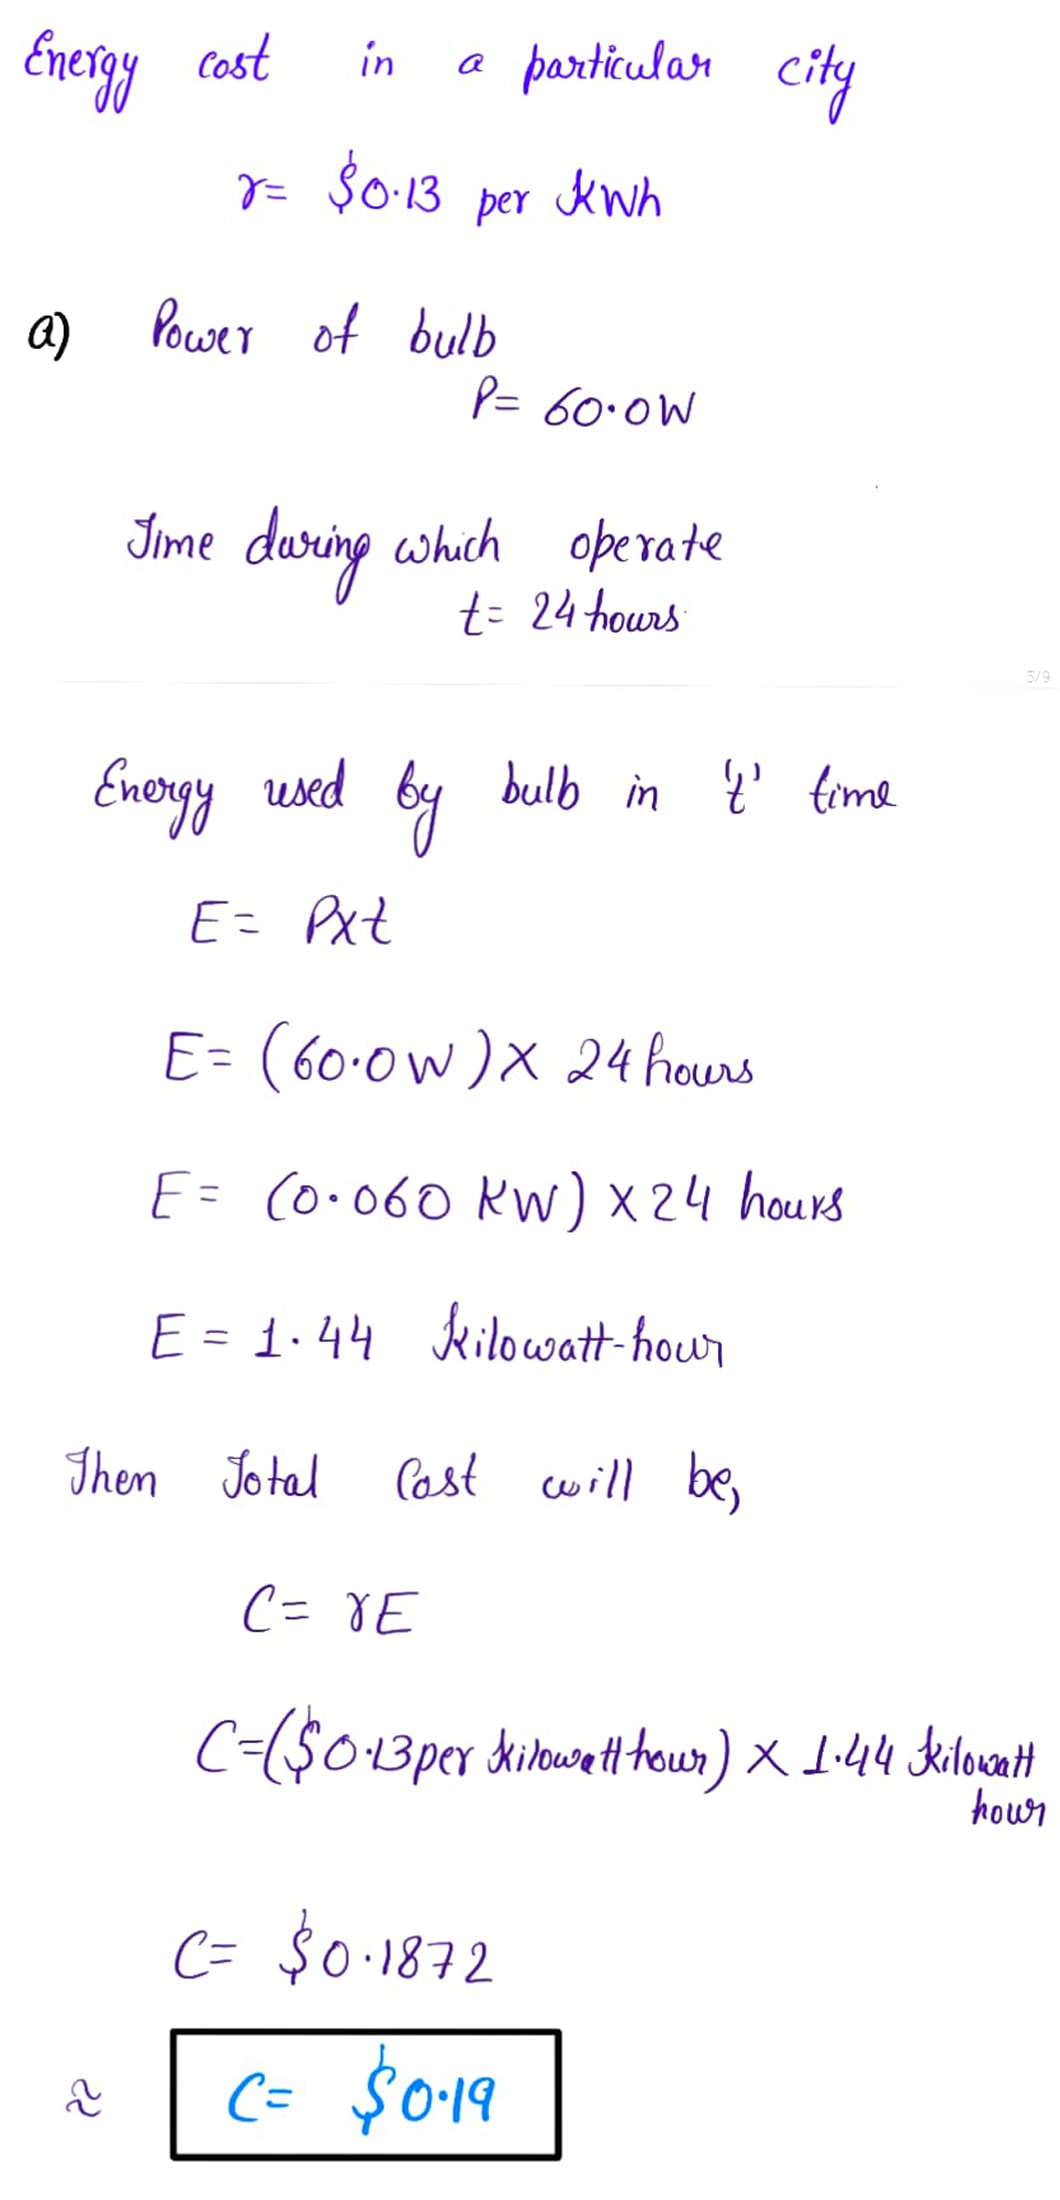 Energy cost in a particular city
r= $0.13 per kWh
a) Power of bulb
P= 60.0W
Time during which operate
t= 24 hours
5/9
Energy used by bulb in 't' time
E= Pxt
E= (60.0W) X 24 hours
E= (0.060 KW) X 24 hours
E = 1.44 kilowatt-hour
Then Total Cost will be,
C= rE
C=($0.13 per kilowatt hour) X 1.44 kilowatt
hour
C= $0.1872
≈ C= $0.19